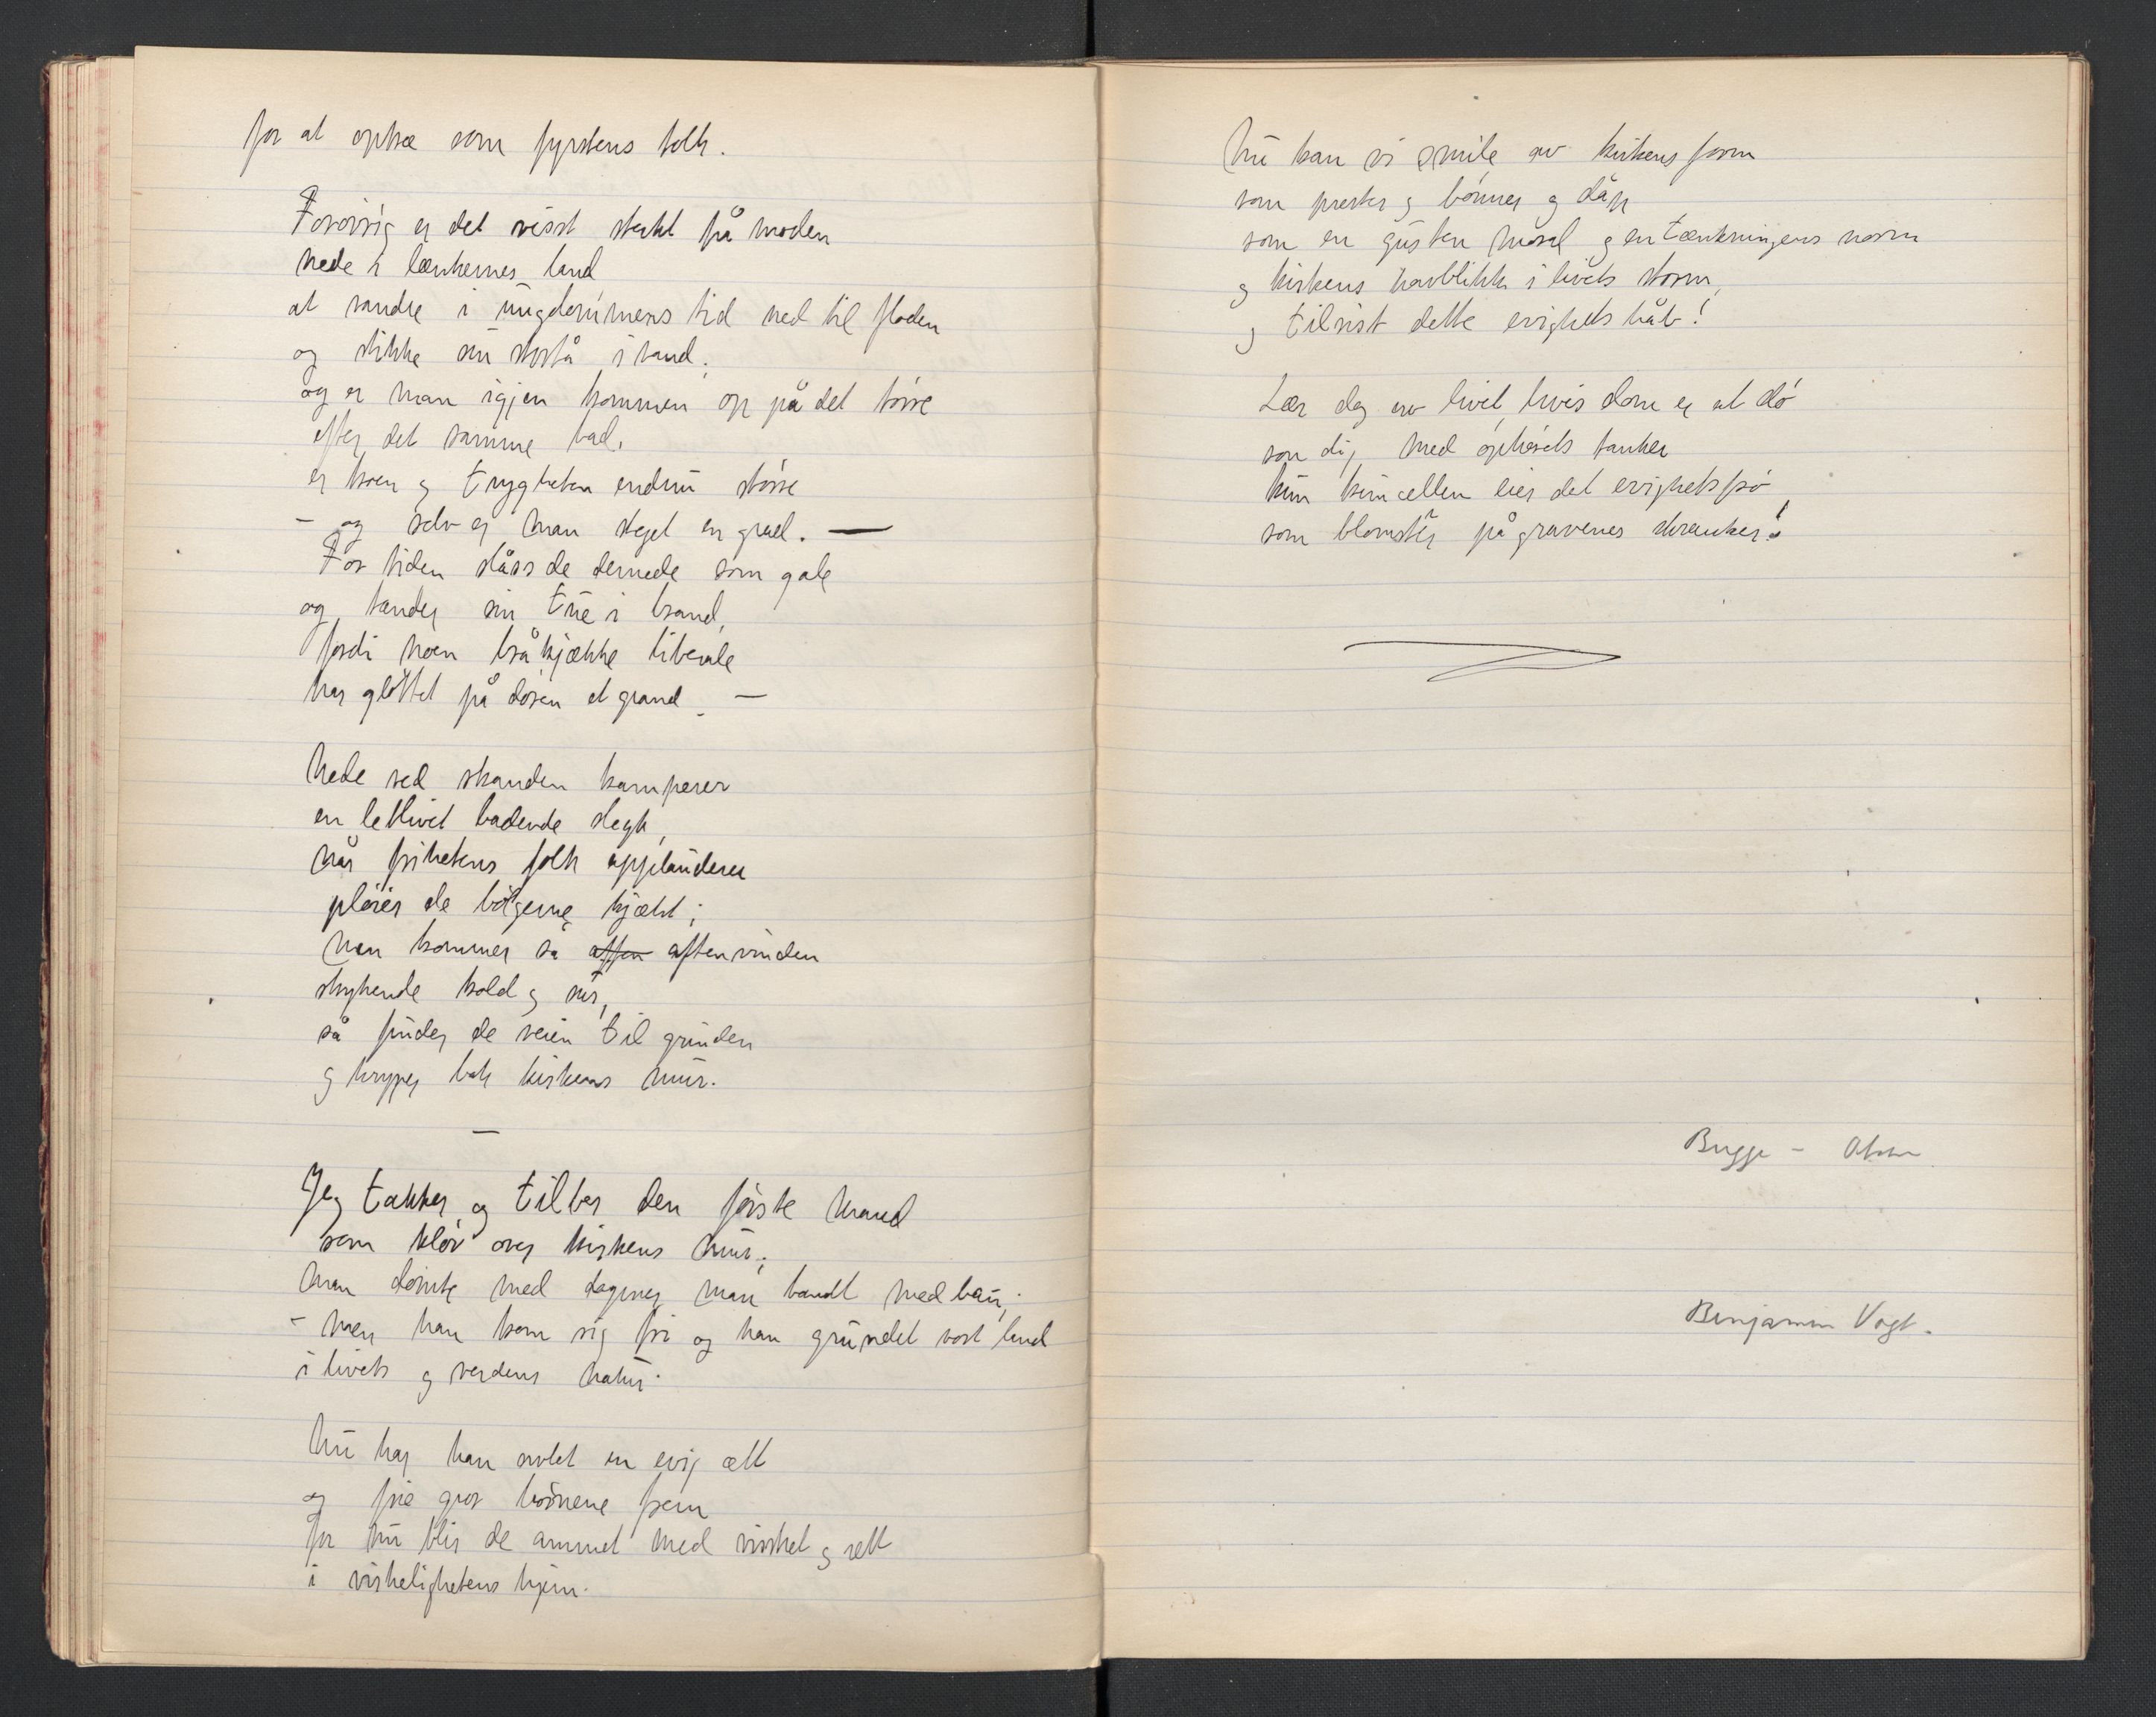 for at optræ som fyrstens tolk.
Forøvrig er det visst sterkt på moden
nede i lænkernes land
at vandre i ungdommens tid ned til floden
og stikke sin stortå i vand.
og er man igjen kommen op på det tørre
efter det samme bad,
er troen og trygheten endnu større
- og selv er man steget en grad. —
For tiden slåss de dernede som gale
og tænder sin tue i brand,
fordi noen bråkjække liberale
har gløttet på døren et grand. —
Nede ved stranden kamperer
en letlivet badende slegt,
når frihetens folk applauderer
pløier de bølgerne kjækt;
men kommer så aften aftenvinden
strykende kold og sur,
så finder de veien til grinden
og kryper bak kirkens mur.
—
Jeg takker og tilber den første mand
som kløv over kirkens mur;
man dømte med dogmer, man bandt med ban;
- men han kom sig fri og han grundet vort land
i livets og verdens natur.
Nu har han avlet en evig ætt
og frie gror børnene frem
for nu blir de ammet med visshet og rett
i virkelighetens hjem.
Nu kan vi smile av kirkens form
som prester og bønner og dåp
som en gusten moral og en tænkningens norm
og kirkens havblikk i livets storm,
og tilsist dette evighets håb!
Lær dog av livet, hvis dom er at dø
som dig, med ophørets tanker
kun kimcellen eier det evighetsfrø
som blomster på gravenes skranker!
Bugge - Olsen
Benjamin Vogt.